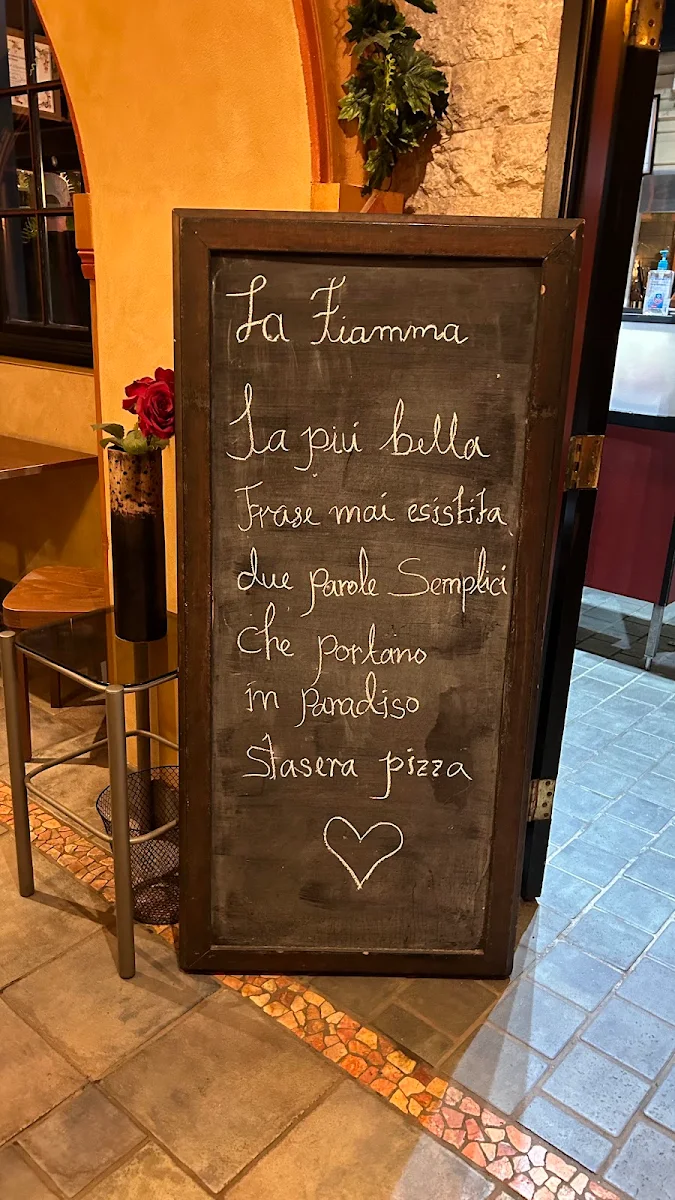 La Fiamma
La piú bella
Frase mai esistita,
due parole Semplici
che portano
in paradiso
Stasera pizza